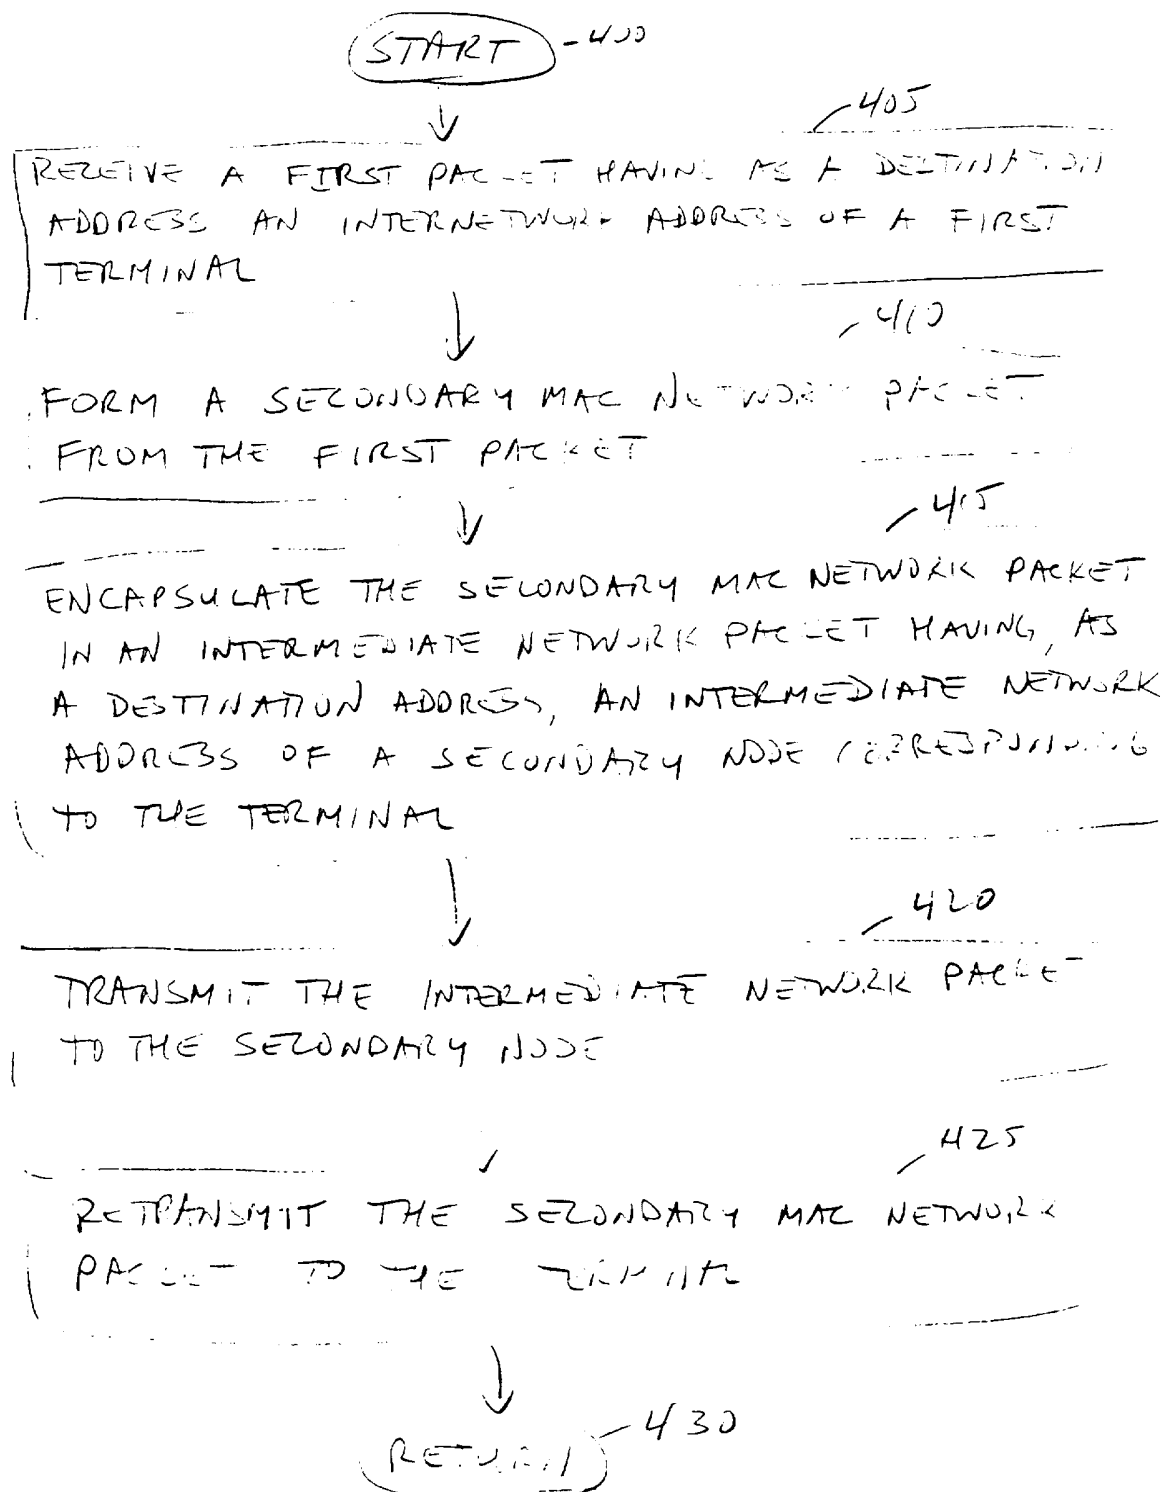 START - 400
405
RECEIVE A FIRST PACKET HAVING AS A DESTINATION
ADDRESS AN INTERNETWORK ADDRESS OF A FIRST
TERMINAL
410
FORM A SECONDARY MAC NETWORK PACKET
FROM THE FIRST PACKET
415
ENCAPSULATE THE SECONDARY MAC NETWORK PACKET
IN AN INTERMEDIATE NETWORK PACKET HAVING, AS
A DESTINATION ADDRESS, AN INTERMEDIATE NETWORK
ADDRESS OF A SECONDARY NODE CORRESPONDING
TO THE TERMINAL
420
TRANSMIT THE INTERMEDIATE NETWORK PACKET
TO THE SECONDARY NODE
425
RETRANSMIT THE SECONDARY MAC NETWORK
PACKET TO THE TERMINAL
430
RETURN